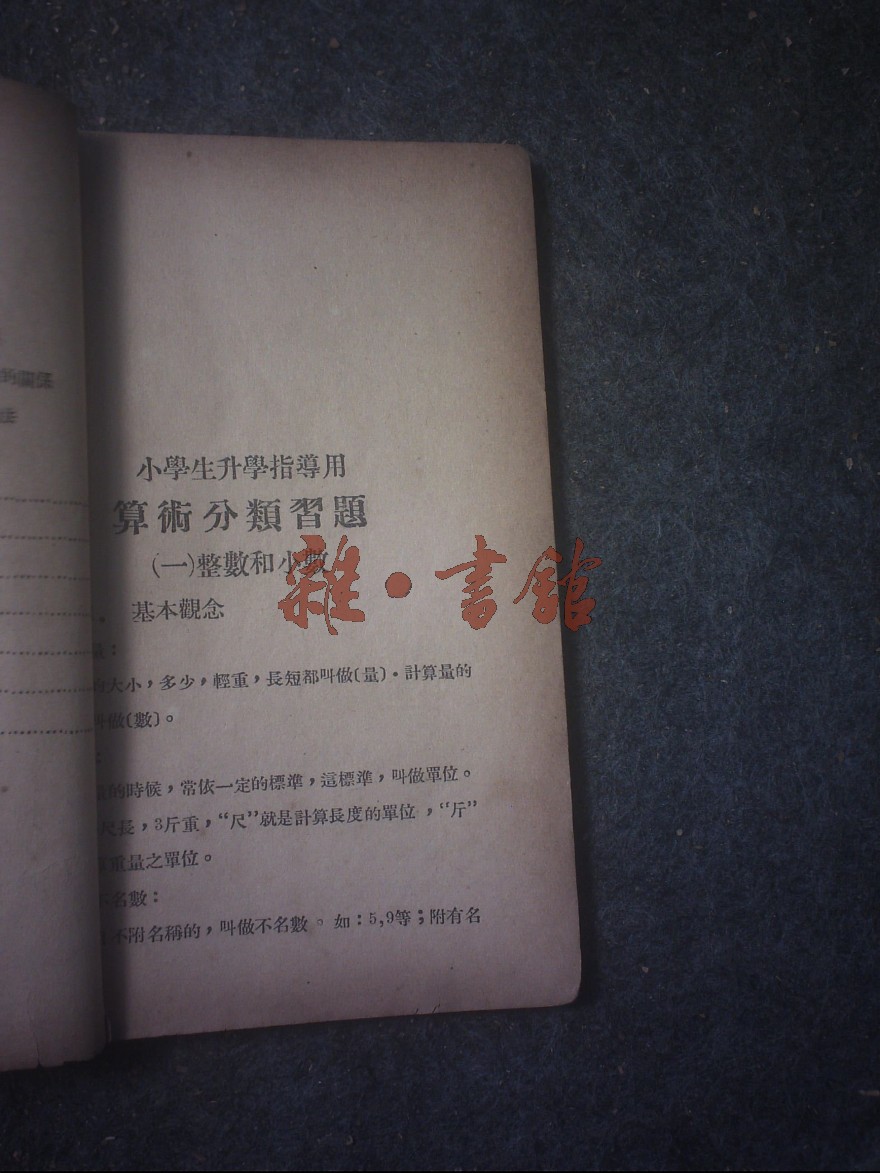 的關係
法
小學生升學指導用
算術分類習題
(一)整數和小數
基本觀念
大小，多少，輕重，長短都叫做〔量〕·計算量的
叫做〔數〕。
的時候，常依一定的標準，這標準，叫做單位。
尺長，3斤重，“尺”就是計算長度的單位，“斤”
重量之單位。
不名數：
不附名稱的，叫做不名數。如：5,9等；附有名
雜·書館